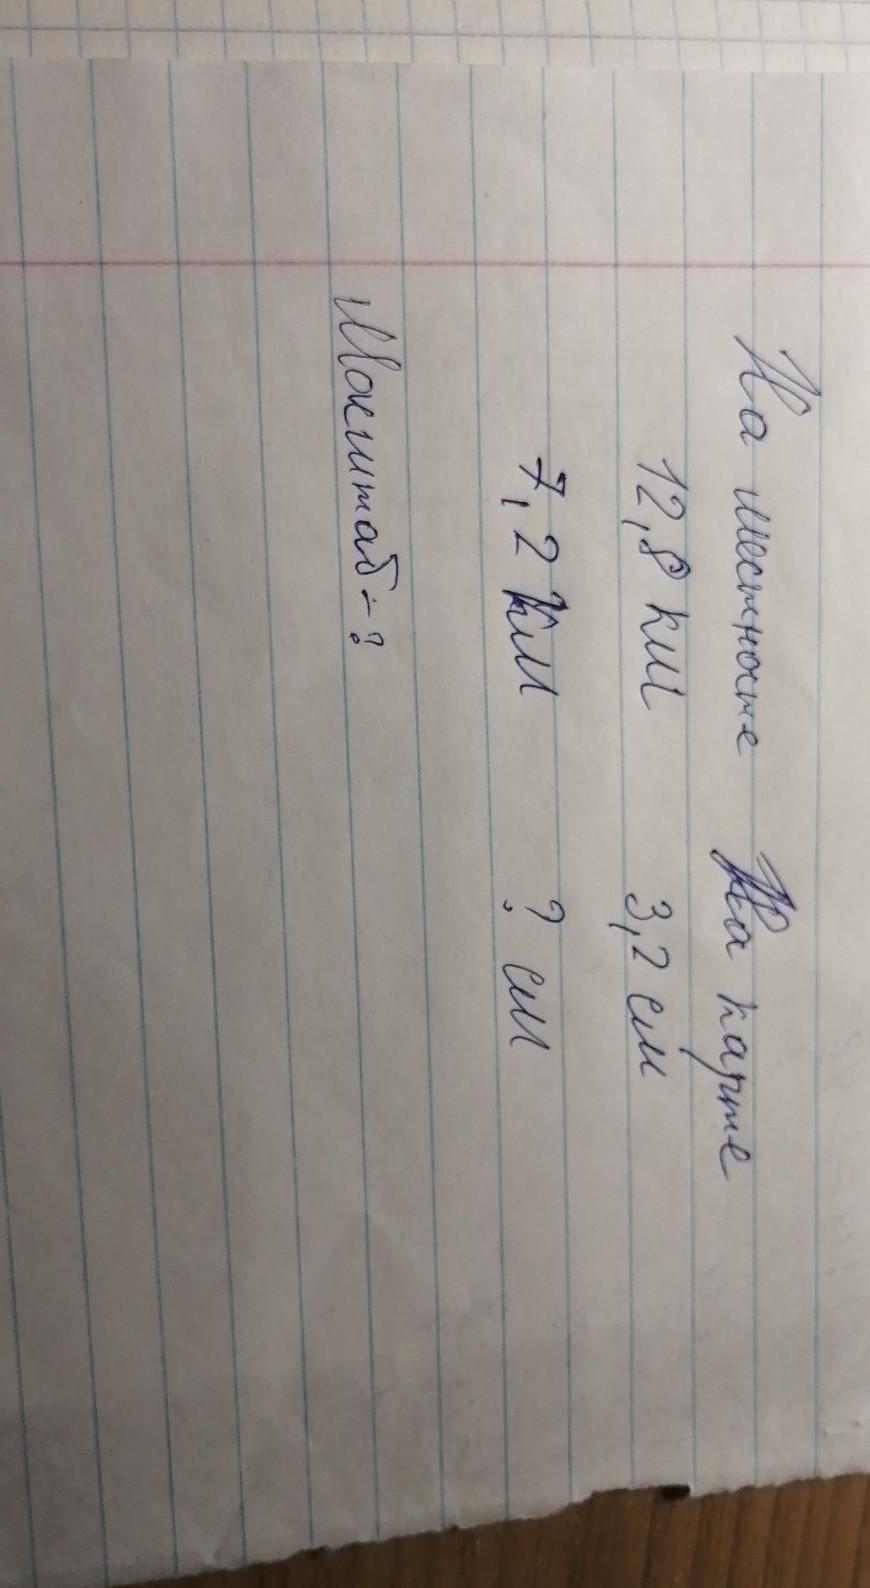 На местносте На карте
12,8 км 3,2 см
7,2 км ? см
Мокштаб - ?